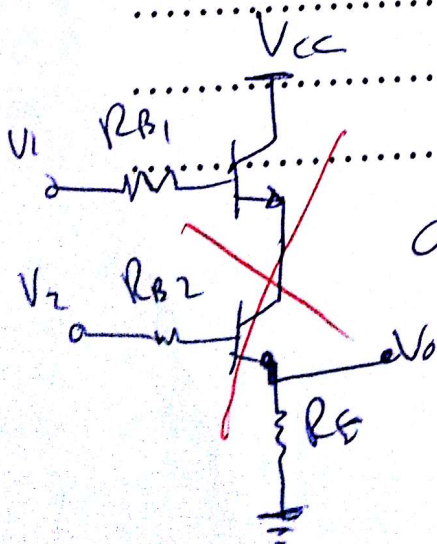 Vcc
V1 RB1
V2 RB2
Vo
RE